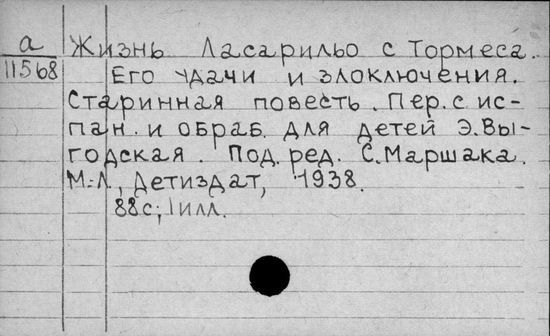 а
11568
Жизнь Ласарильо с Тормеса.
Его удачи и злоключения.
Старинная повесть. Пер. с ис-
пан. и обраб. для детей Э. Вы-
годская. Под. ред. С. Маршака.
М.-Л., Детиздат, 1938.
88с; 1 илл.